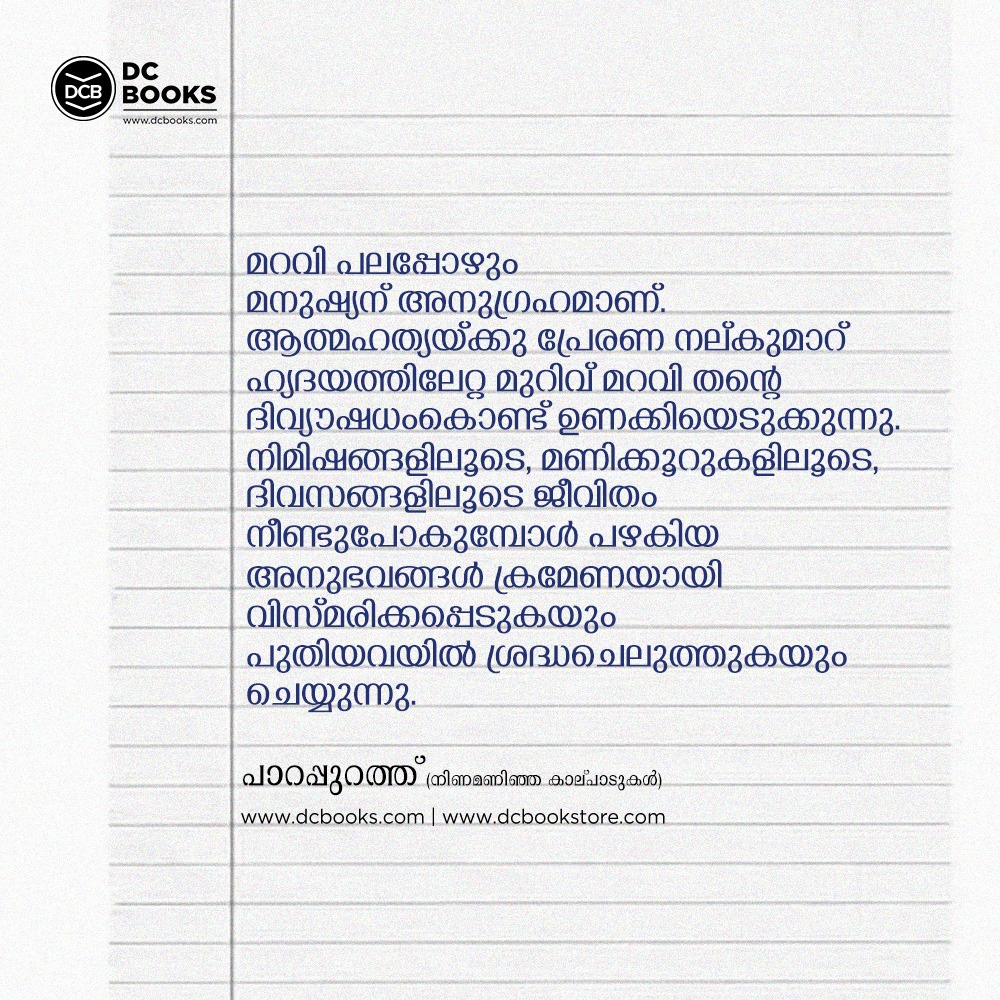 DCB
DC
BOOKS
www.dcbooks.com
മറവി പലപ്പോഴും
മനുഷ്യന് അനുഗ്രഹമാണ്.
ആത്മഹത്യയ്ക്കു പ്രേരണ നല്കുമാറ്
ഹൃദയത്തിലേറ്റ മുറിവ് മറവി തന്റെ
ദിവ്യൗഷധംകൊണ്ട് ഉണക്കിയെടുക്കുന്നു.
നിമിഷങ്ങളിലൂടെ, മണിക്കൂറുകളിലൂടെ,
ദിവസങ്ങളിലൂടെ ജീവിതം
നീണ്ടുപോകുമ്പോൾ പഴകിയ
അനുഭവങ്ങൾ ക്രമേണയായി
വിസ്മരിക്കപ്പെടുകയും
പുതിയവയിൽ ശ്രദ്ധചെലുത്തുകയും
ചെയ്യുന്നു.
പാറപ്പുറത്ത് (നിണമണിഞ്ഞ കാല്പാടുകൾ)
www.dcbooks.com | www.dcbookstore.com